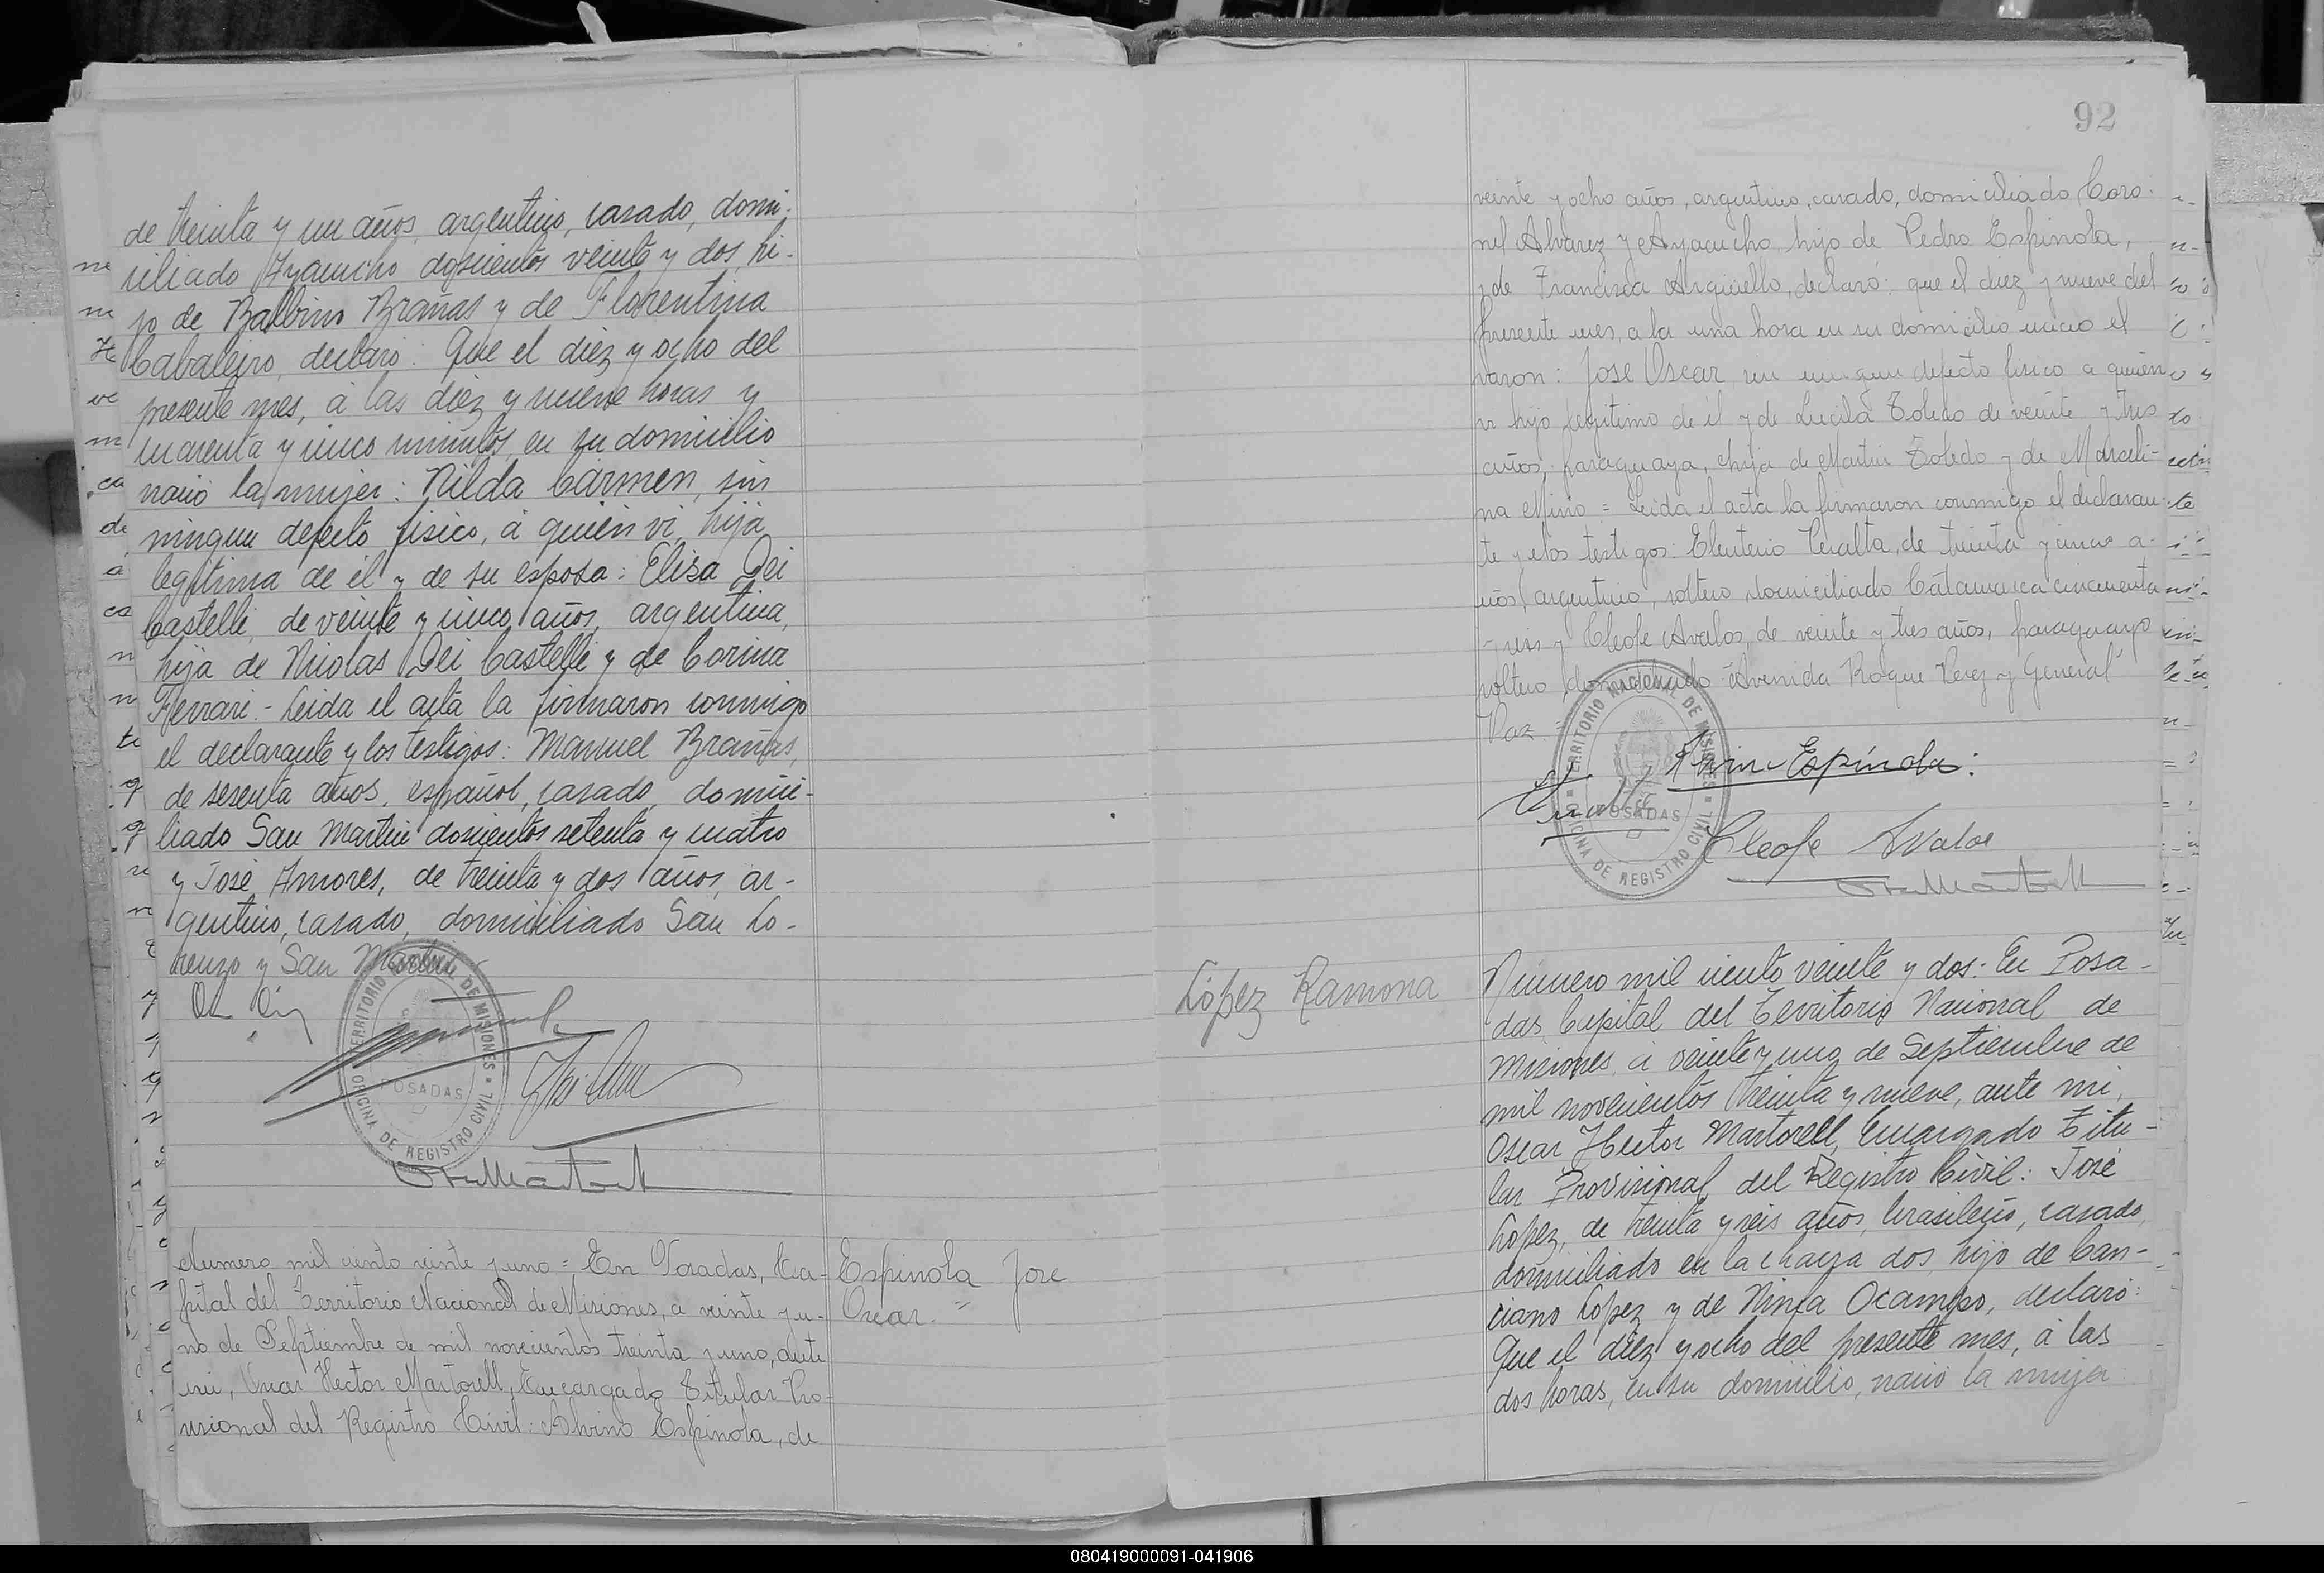 de treinta y un años, argentino, casado, domi-
ciliado Ayacucho doscientos veinte y dos, hi-
jo de Balbino Brañas y de Florentina
Cabaleiro, declaró: Que el diez y ocho del
presente mes, á las diez y nueve horas y
cuarenta y cinco minutos, en su domicilio
nació la mujer: Nilda Carmen, sin
ningun defecto fisico, á quien vi, hija
legitima de él y de su esposa: Elisa Dei
Castelli, de veinte y cinco años, argentina,
hija de Nicolas Dei Castelli y de Corina
Ferrari.- Leida el acta la firmaron conmigo
el declarante y los testigos: Manuel Brañas,
de sesenta años, español, casado, domici-
liado San Martin doscientos setenta y cuatro
y José Amores, de treinta y dos años, ar-
gentino, casado, domiciliado San Lo-
renzo y San Martin
TERRITORIO NACIONAL DE MISIONES
POSADAS
OFICINA DE REGISTRO CIVIL
Numero mil ciento veinte y uno = En Posadas, Ca-
pital del Territorio Nacional de Misiones, a veinte y u-
no de Septiembre de mil novecientos treinta y uno, ante
mi, Oscar Hector Martorell, Encargado Titular Pro-
visional del Registro Civil: Alvino Espinola, de
Espinola Jose
Oscar. =
92
veinte y ocho años, argentino, casado, domiciliado Coro-
nel Alvarez y Ayacucho, hijo de Pedro Espinola,
y de Francisca Argüello, declaró: que el diez y nueve del
presente mes, a la una hora en su domicilio nacio el
varon: Jose Oscar, sin ningun defecto fisico a quien
vi hijo legitimo de él y de Lucila Toledo de veinte y tres
años, paraguaya, hija de Martin Toledo y de Marceli-
na Miño = Leida el acta la firmaron conmigo el declaran-
te y los testigos: Eleuterio Peralta, de treinta y cinco a-
ños, argentino, soltero domiciliado Catamarca cincuenta
y seis y Cleofe Avalos, de veinte y tres años, paraguayo
soltero domiciliado Avenida Roque Perez y General
Paz. =
Espínola:
Cleofe Avalos
TERRITORIO NACIONAL DE MISIONES
POSADAS
OFICINA DE REGISTRO CIVIL
López Ramona
Número mil ciento veinte y dos: En Posa-
das Capital del Territorio Nacional de
Misiones, á veinte y uno de Septiembre de
mil novecientos treinta y nueve, ante mi,
Oscar Hector Martorell, Encargado Titu-
lar Provisional del Registro Civil: José
Lopez, de treinta y seis años, brasileño, casado,
domiciliado en la chacra dos, hijo de Can-
ciano Lopez y de Ninfa Ocampo, declaró:
Que el diez y ocho del presente mes, á las
dos horas, en su domicilio, nació la mujer
080419000091-041906